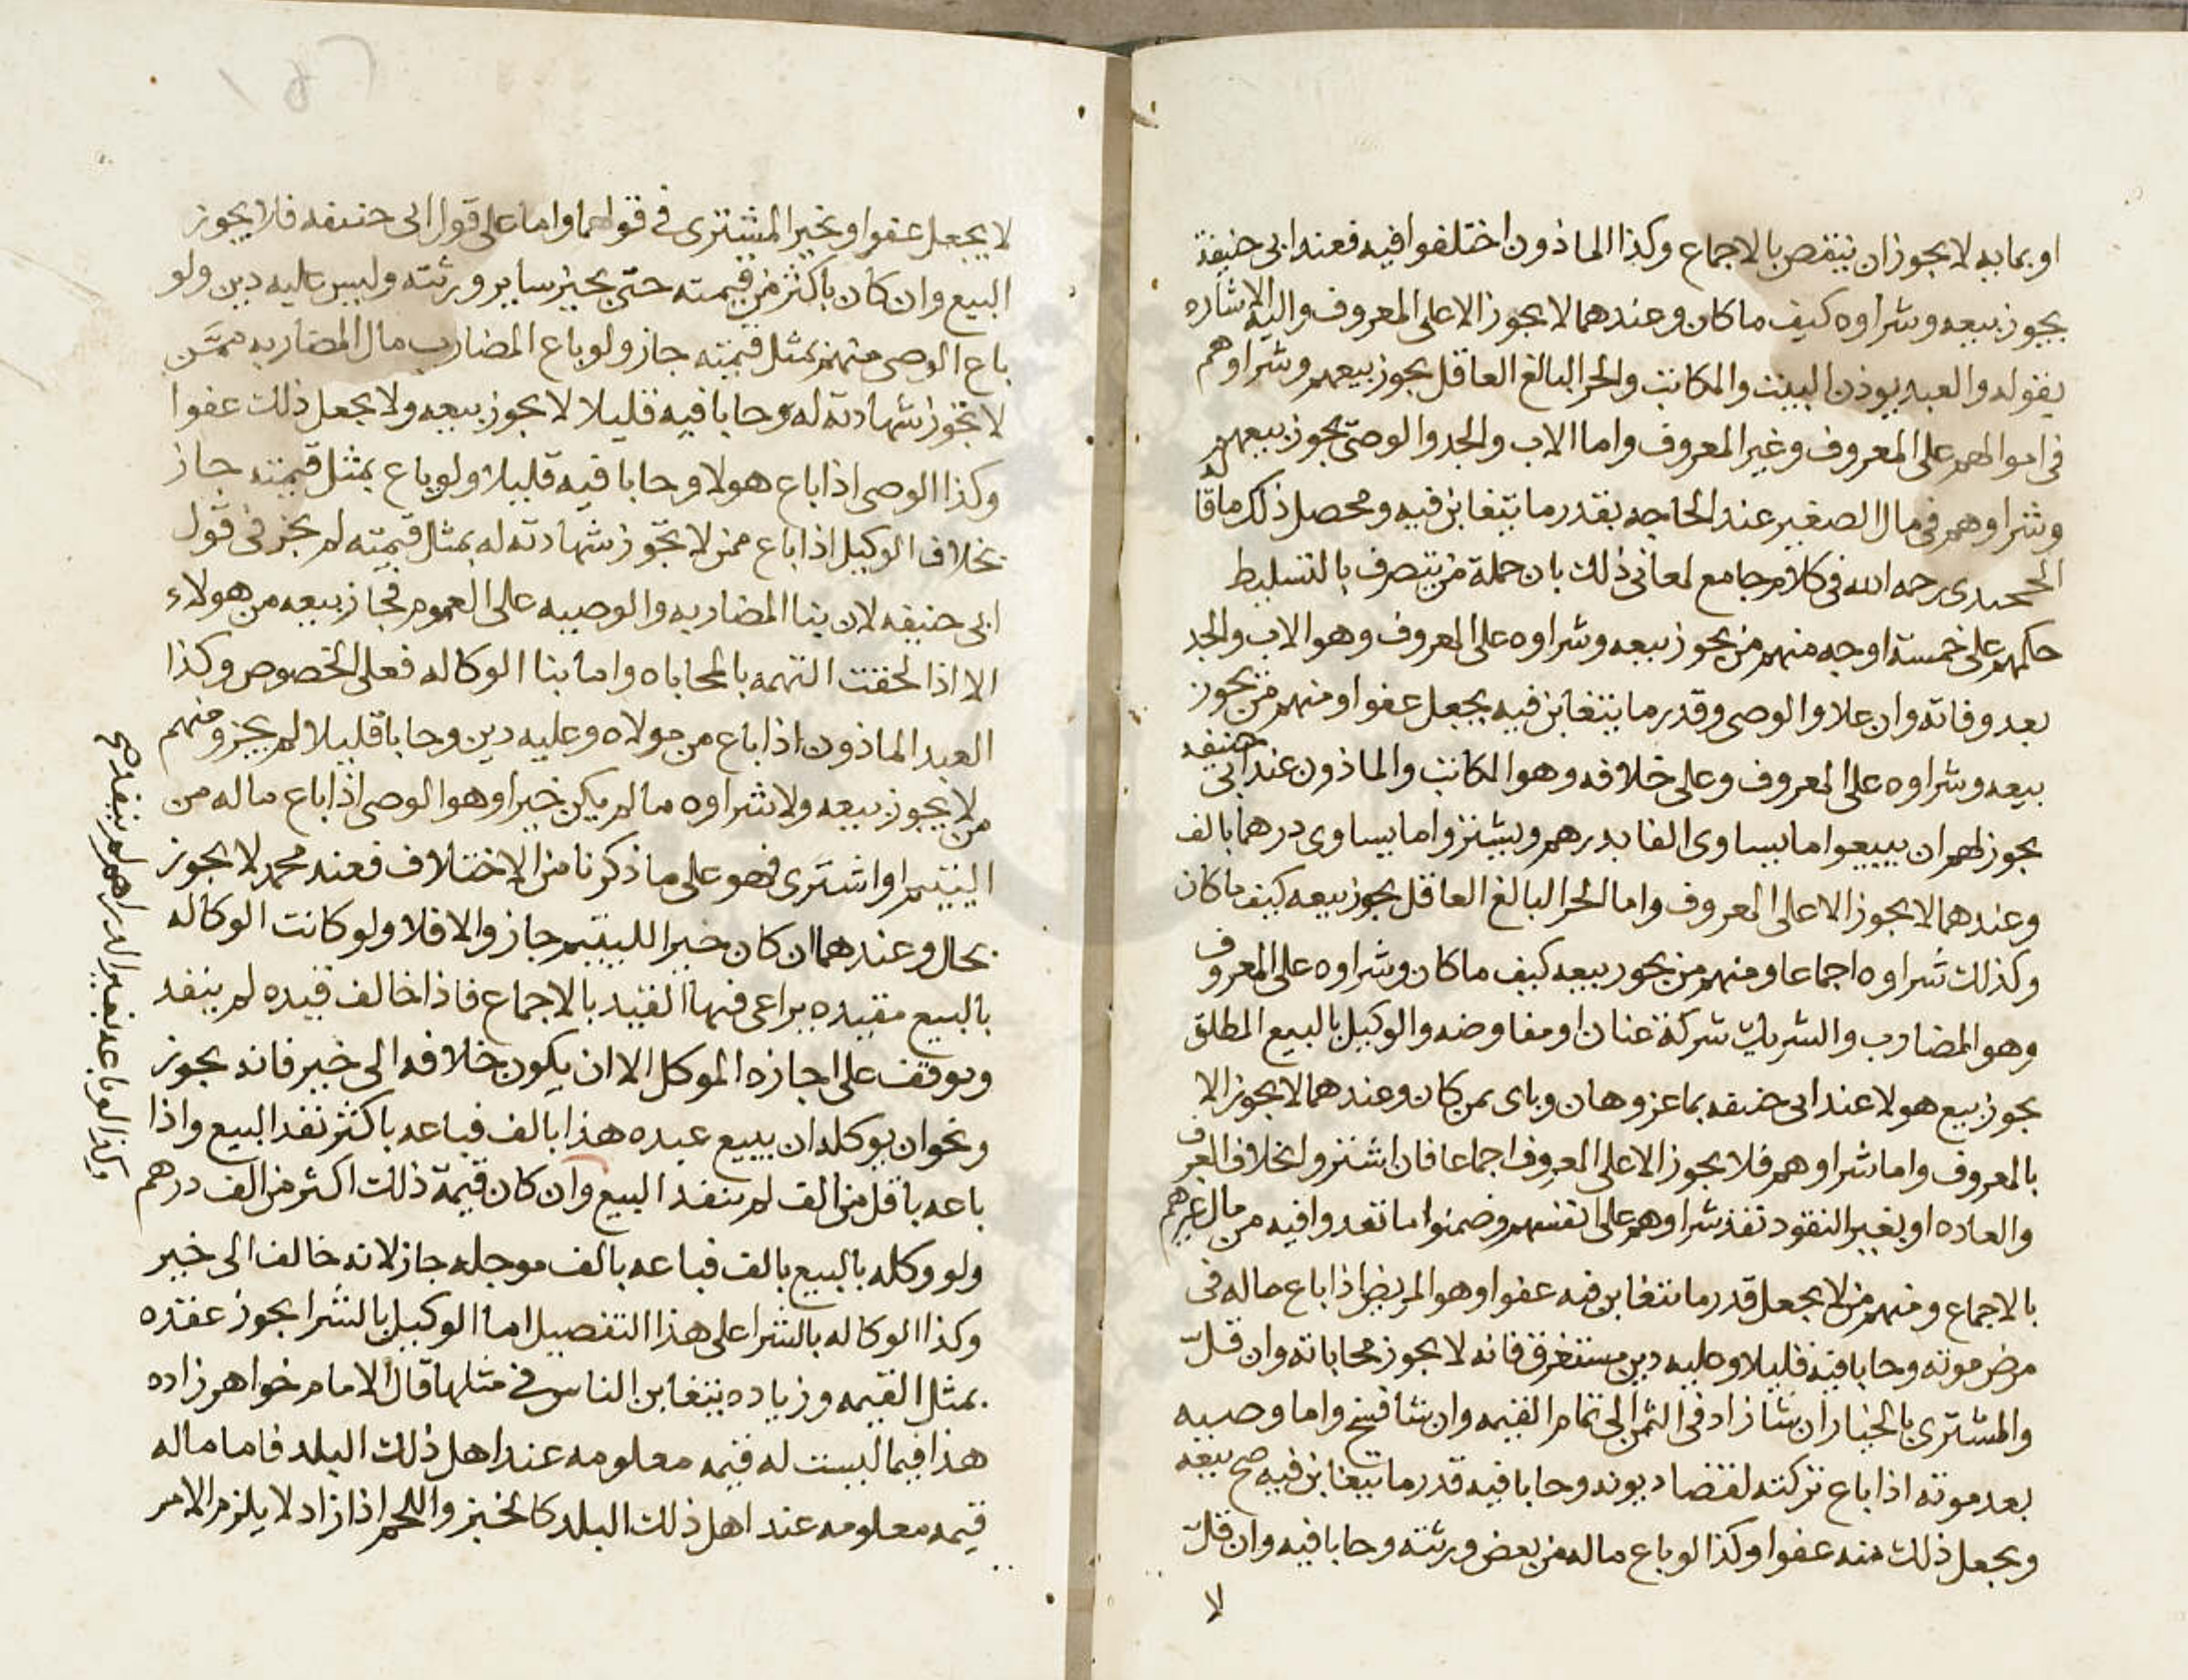 او بما به لا يجوز ان ينقص بالاجماع وكذا الماذون اختلفوا فيه فعند ابى حنيفة
يجوز بيعه وشراوه كيف ما كان وعندهما لا يجوز الا على المعروف واليه الاشاره
بقوله والعبد يوذن البينت والمكاتب والحر البالغ العاقل يجوز بيعهم وشراوهم
فى اموالهم على المعروف وغير المعروف واما الاب والجد والوصى يجوز بيعهم
وشراوهم فى مال الصغير عند الحاجه بقدر ما يتغابن فيه ومحصل ذلك ما قاله
رحمه الله فى كلام جامع لمعانى ذلك بان جملة من يتصرف بالتسليط
حكمهم على خمسة اوجه منهم من يجوز بيعه وشراوه على المعروف وهو الاب والجد
بعد وفاته وان علا والوصى وقدر ما يتغابن فيه يجعل عفوا ومنهم من يجوز
بيعه وشراوه على المعروف وعلى خلافه وهو المكاتب والماذون عند ابى حنيفه
يجوز لهم ان يبيعوا ما يساوى الفا بدرهم ويشتروا ما يساوى درهما بالف
وعندهما لا يجوز الا على المعروف واما الحر البالغ العاقل يجوز بيعه كيف ما كان
وكذلك شراوه اجماعا ومنهم من يجوز بيعه كيف ما كان وشراوه على المعروف
وهو المضارب والشريك شركة عنان او مفاوضه والوكيل بالبيع المطلق
يجوز بيع هولا عند ابى حنيفه بما عز وهان وباى ثمن كان وعندهما لا يجوز الا
بالمعروف واما شراوهم فلا يجوز الا على المعروف اجماعا فان اشتروا بخلاف العرف
والعاده او بغير النقود نفذ شراوهم على انفسهم وضمنوا ما نقدوا فيه من مال غيرهم
بالاجماع ومنهم من لا يجعل قدر ما يتغابن فيه عفوا وهو المريض اذا باع ماله فى
مرض موته وحابا فيه قليلا وعليه دين مستغرق فانه لا يجوز محاباته وان قل
والمشترى بالخيار ان شا زاد فى الثمن الى تمام القيمه وان شا فسخ واما وصيه
بعد موته اذا باع تركته لقضا ديونه وحابا فيه قدر ما يتغابن فيه صح بيعه
ويجعل ذلك منه عفوا وكذا لو باع ماله من بعض ورثته وحابا فيه وان قل
لا
لا يجعل عفوا ويخير المشترى فى قولهما واما على قول ابى حنيفه فلا يجوز
البيع وان كان باكثر من قيمته حتى يجيز ساير ورثته وليس عليه دين ولو
باع الوصى منهم بمثل قيمته جاز ولو باع المضارب مال المضاربه ممن
لا تجوز شهادته له وحابا فيه قليلا لا يجوز بيعه ولا يجعل ذلك عفوا
وكذا الوصى اذا باع هولا وحابا فيه قليلا ولو باع بمثل قيمته جاز
بخلاف الوكيل اذا باع ممن لا تجوز شهادته له بمثل قيمته لم يجز فى قول
ابى حنيفه لان بنا المضاربه والوصيه على العموم فجاز بيعه من هولاء
الا اذا لحقت التهمه بالمحاباه واما بنا الوكاله فعلى الخصوص وكذا
العبد الماذون اذا باع من مولاه وعليه دين وحابا قليلا لم يجز ومنهم
من لا يجوز بيعه ولا شراوه ما لم يكن خيرا وهو الوصى اذا باع ماله من
اليتيم او اشترى فهو على ما ذكرنا من الاختلاف فعند محمد لا يجوز
بحال وعندهما ان كان خيرا لليتيم جاز والا فلا ولو كانت الوكاله
بالبيع مقيده يراعى فيها القيد بالاجماع فاذا خالف قيده لم ينفد
وتوقف على اجازه الموكل الا ان يكون خلافه الى خير فانه يجوز
ونحو ان يوكله ان يبيع عبده هذا بالف فباعه باكثر نفد البيع واذا
باعه باقل من الف لم ينفد البيع وان كان قيمة ذلك اكثر من الف درهم
ولو وكله بالبيع بالف فباعه بالف موجله جاز لانه خالف الى خير
وكذا الوكاله بالشرا على هذا التفصيل اما الوكيل بالشرا يجوز عقده
بمثل القيمه وزياده يتغابن الناس فى مثلها قال الامام خواهر زاده
هذا فيما ليست له قيمه معلومه عند اهل ذلك البلد فاما ماله
قيمه معلومه عند اهل ذلك البلد كالخبز واللحم اذا زاد لا يلزم الامر
وكذا لو باعه بغير الدراهم لم ينفد صح